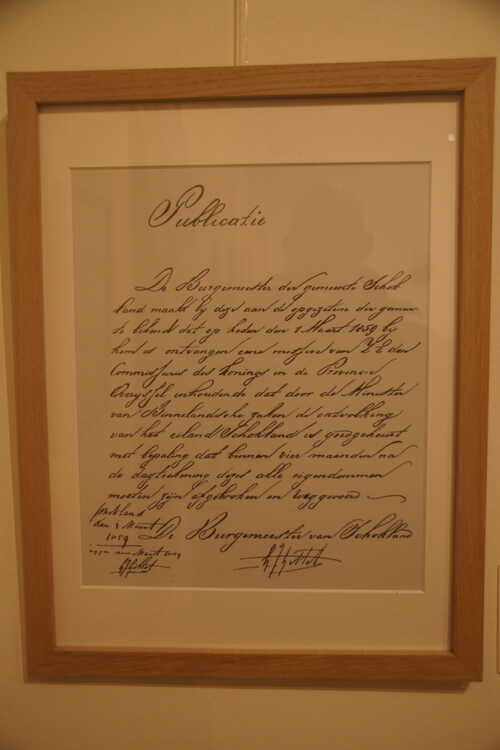 Publicatie
De Burgemeester der gemeente Schok
land maakt bij deze aan de opgezetene der gemeen
te bekend dat op heden den 1 Maart 1859 bij
hem is ontvangen eene missive van Z E den
Commissaris des Konings in de Provincie
Overyssel inhoudende dat door de Minister
van Binnelandsche zaken de ontvolking
van het eiland Schokland is goedgekeurt
met bepaling dat binnen vier maanden na
de dagtekening dezes alle eigendommen
moeten zijn afgebroken en weggevoerd
Schokland
den 1 Maart
1859
De Burgemeester van Schokland
Maart 1859